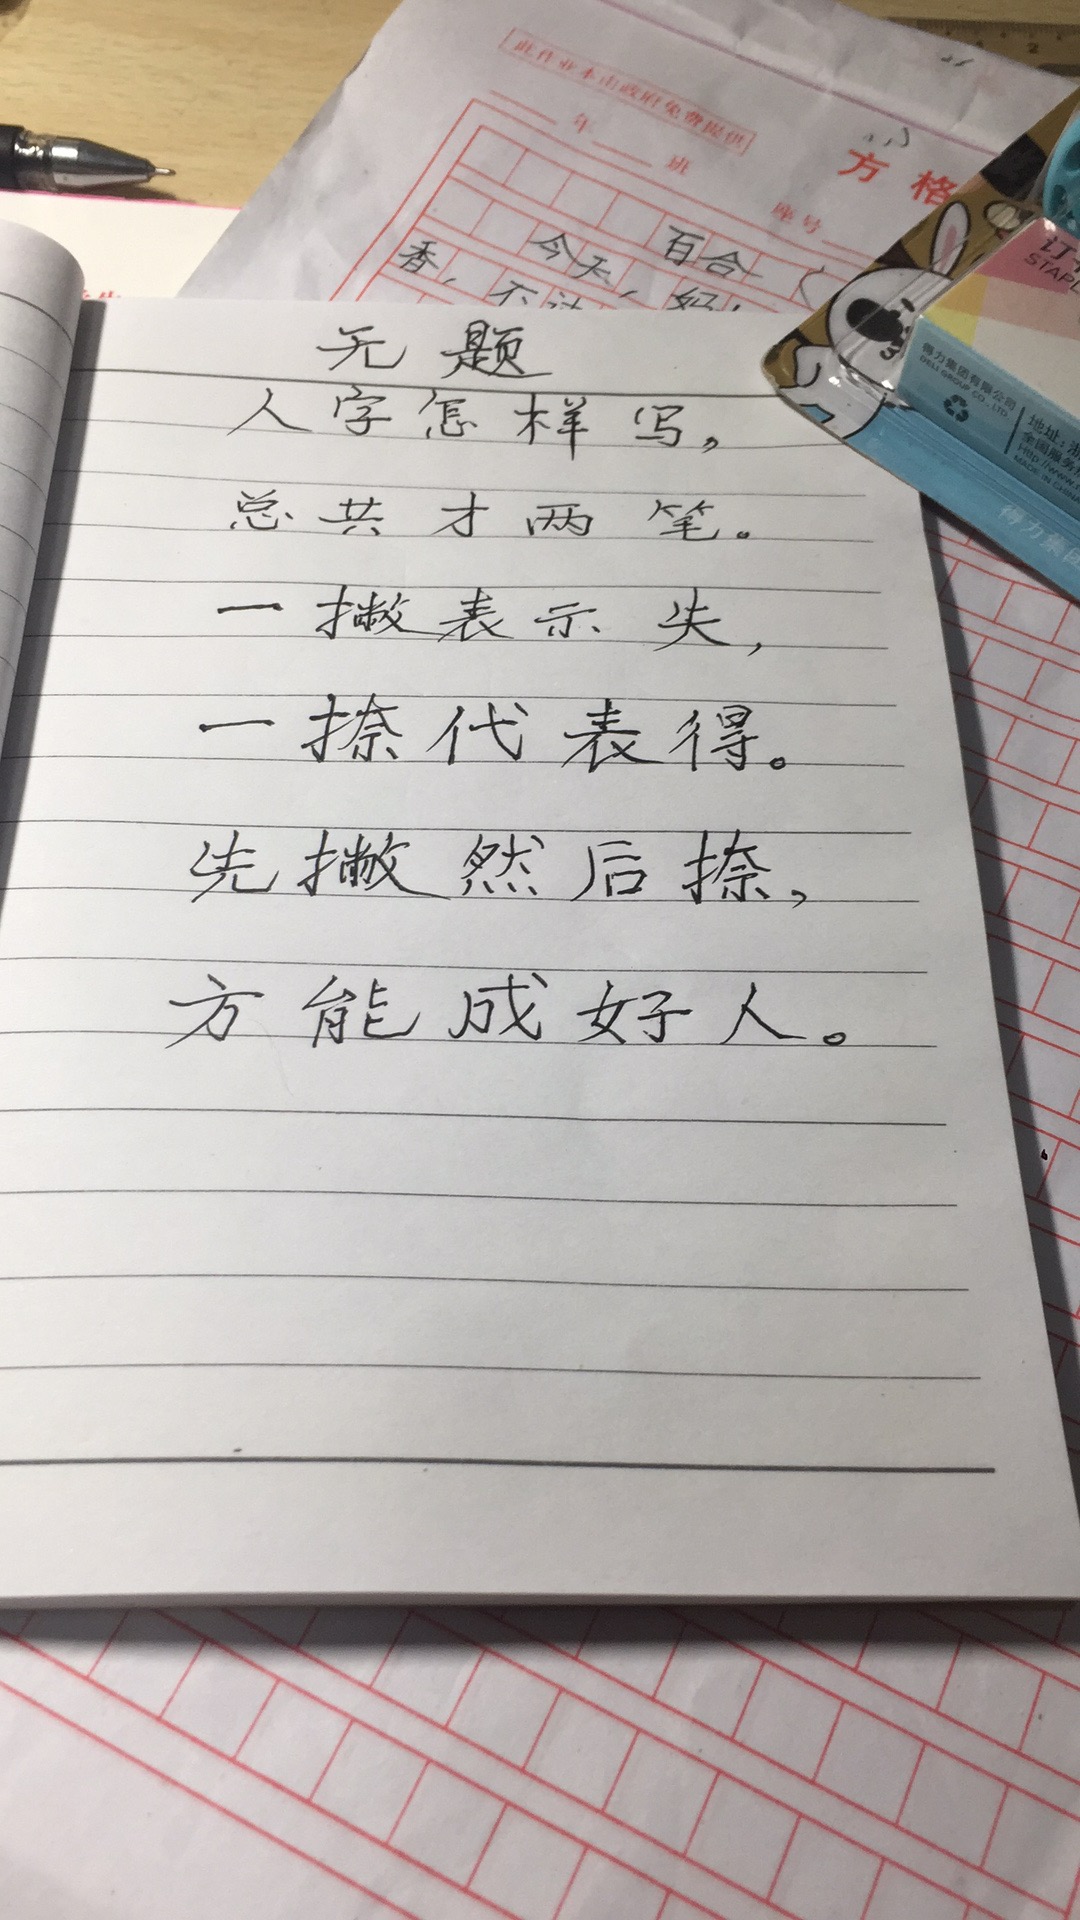 此作业本由政府免费提供
年
班
座号
方格
今天,
百合
香,
无题
人字怎样写,
总共才两笔。
一撇表示失,
一捺代表得。
先撇然后捺,
方能成好人。
STAPL
得力集团有限公司
DELI GROUP CO., LTD
地址:浙
全国服务
Http://www.
MADE IN CHINA
得力集团
2